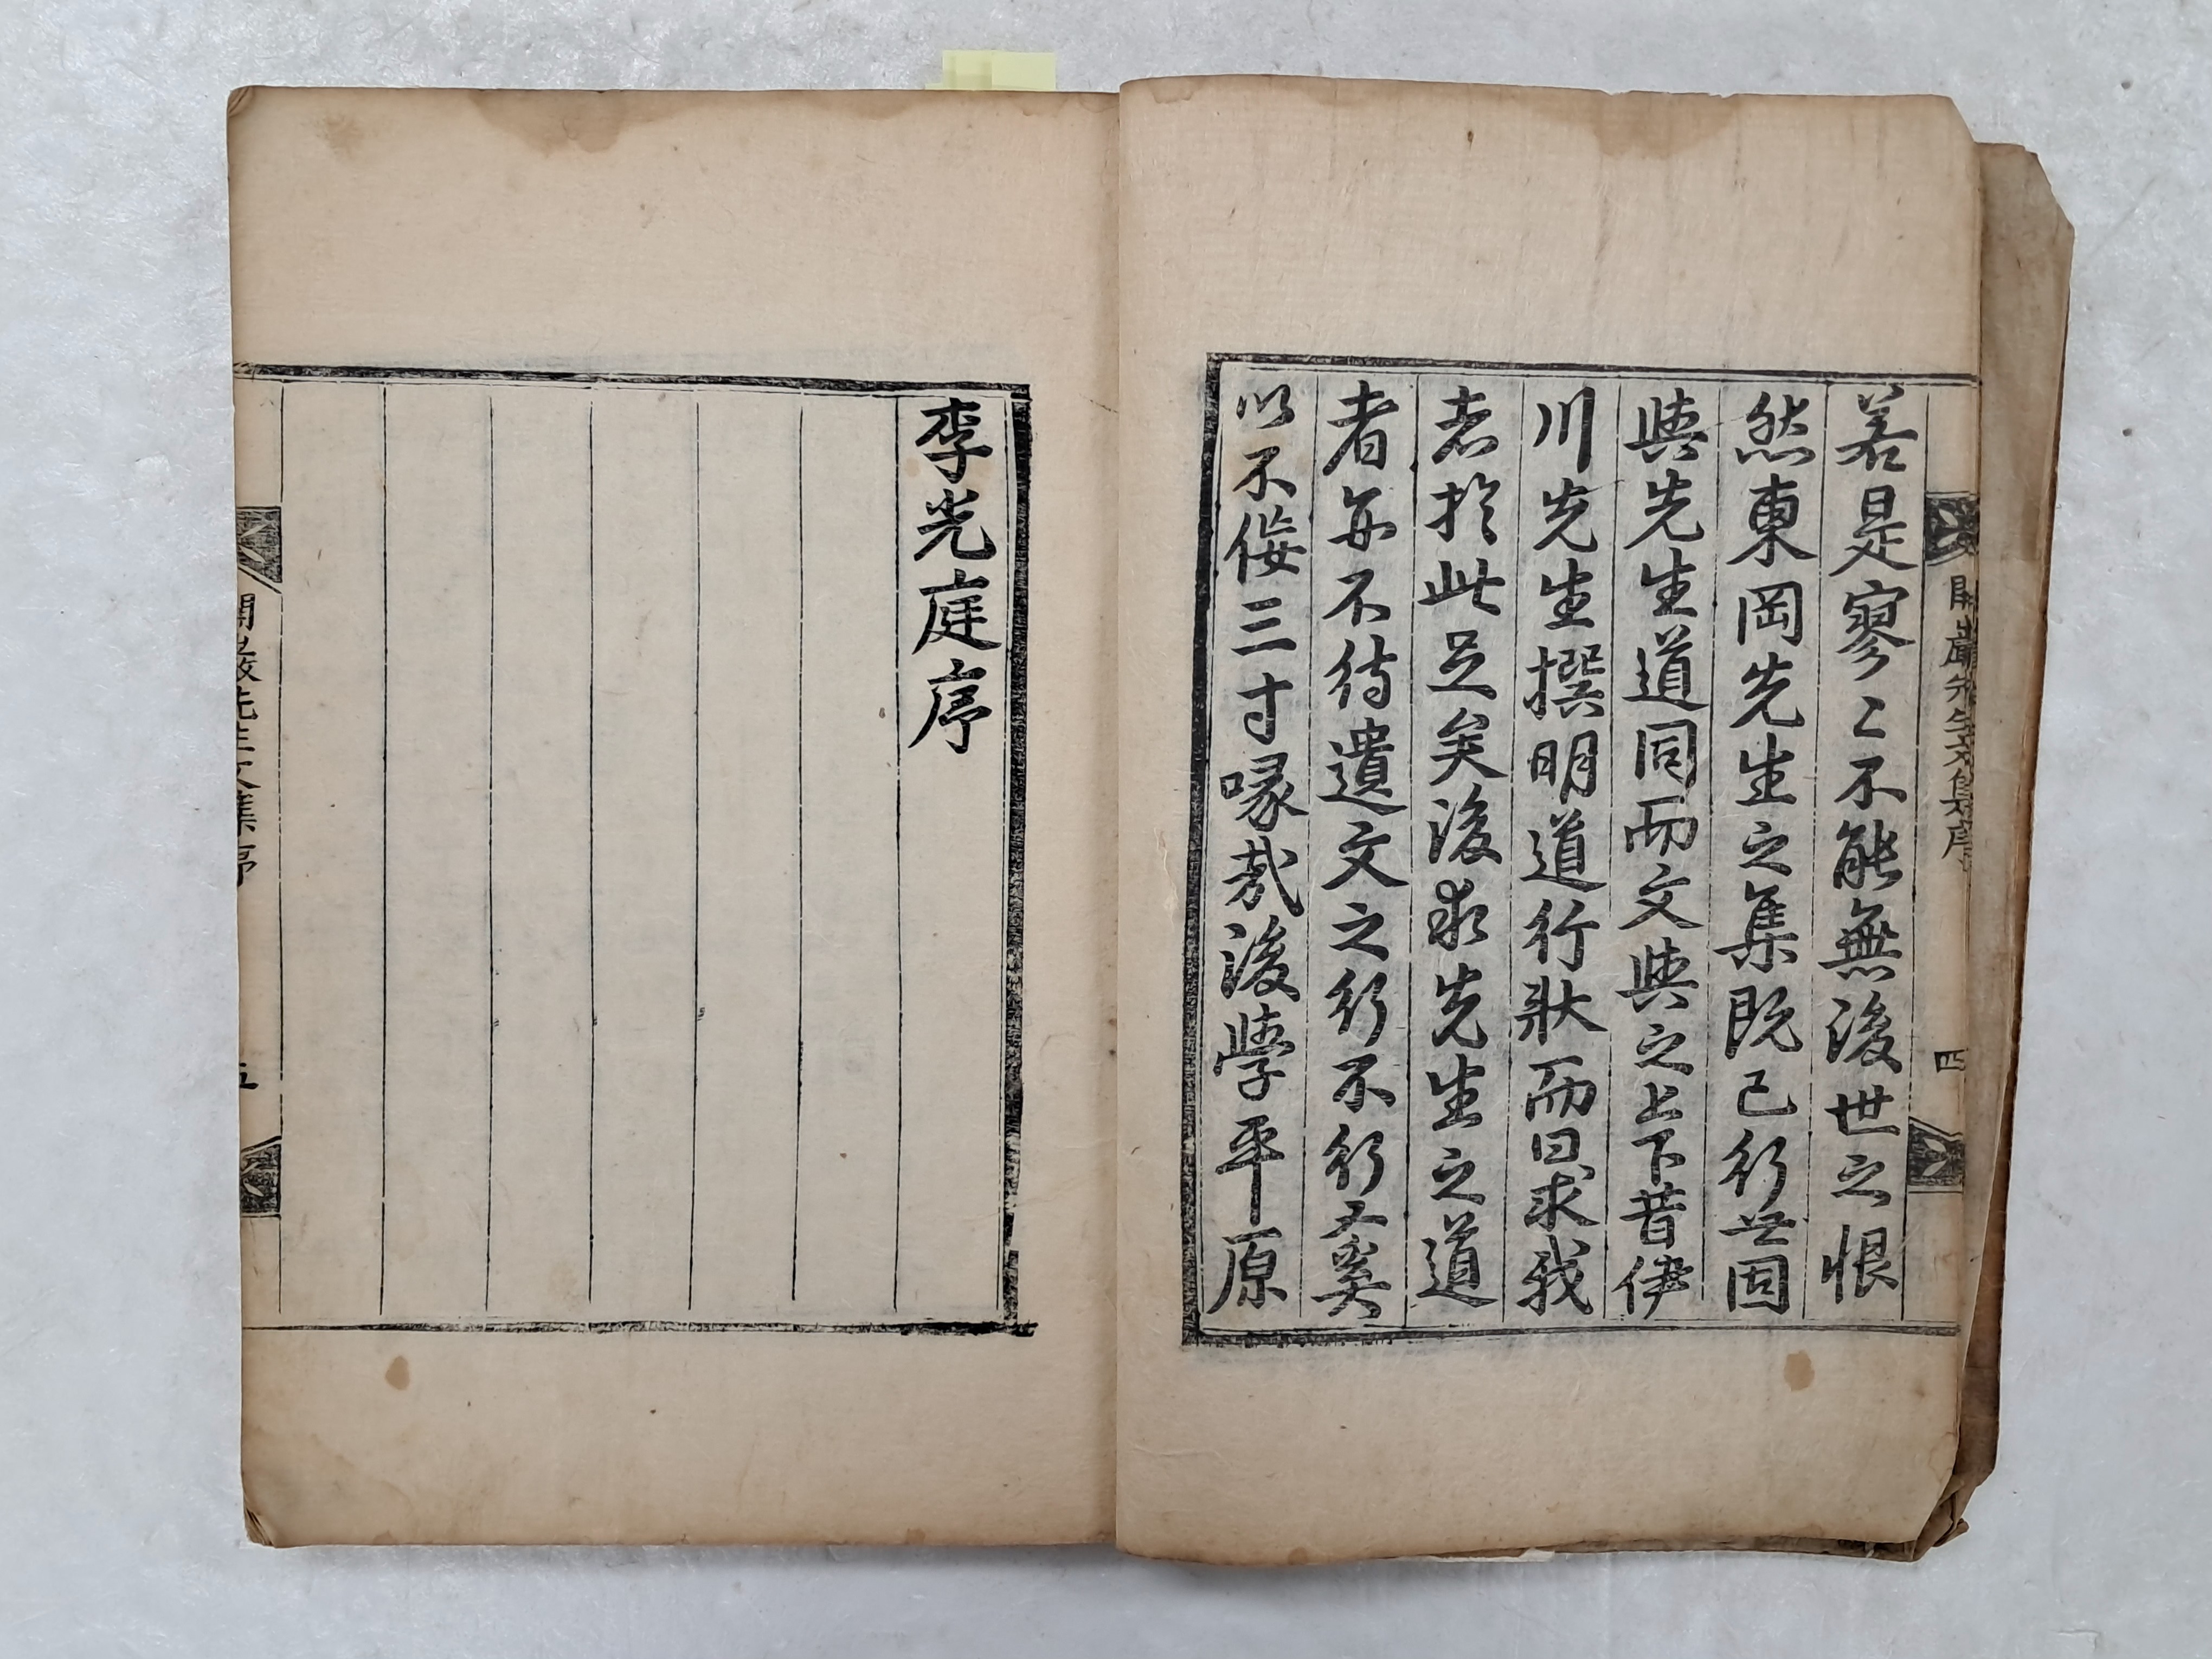 開巖先生文集序
四
若是寥〻不能無後世之恨
然東岡先生之集既已行世因
與先生道同而文與之上下昔伊
川先生撰明道行狀而曰求我
者於此足矣後求先生之道
者亦不待遺文之行不行又奚
以不侫三寸喙哉後學平原
李光庭序
開巖先生文集序
五